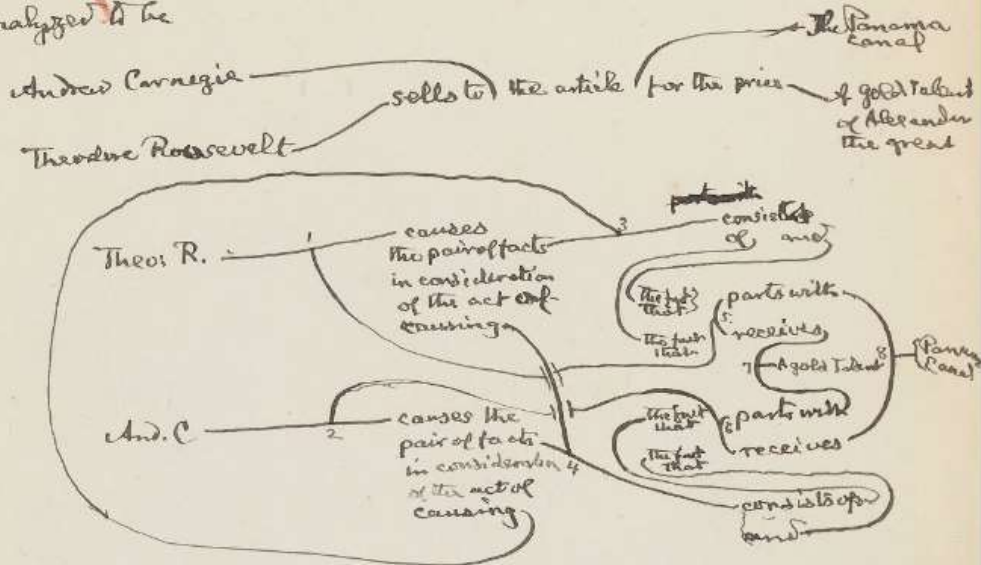 analyzed to be
The Panama
Canal
Andrew Carnegie
sells to the article for the price
A gold talent
of Alexander
the great
Theodore Roosevelt
Theo. R.
1
causes
the pair of facts
in consideration
of the act of
causing
3
consists
of and
the fact
that
the fact
that
parts with
5
receives
7 A gold Talent 8
Panama
Canal
And. C
2
causes the
pair of facts
in consideration 4
of the act of
causing
the fact
that
the fact
that
6
parts with
receives
consists of
and